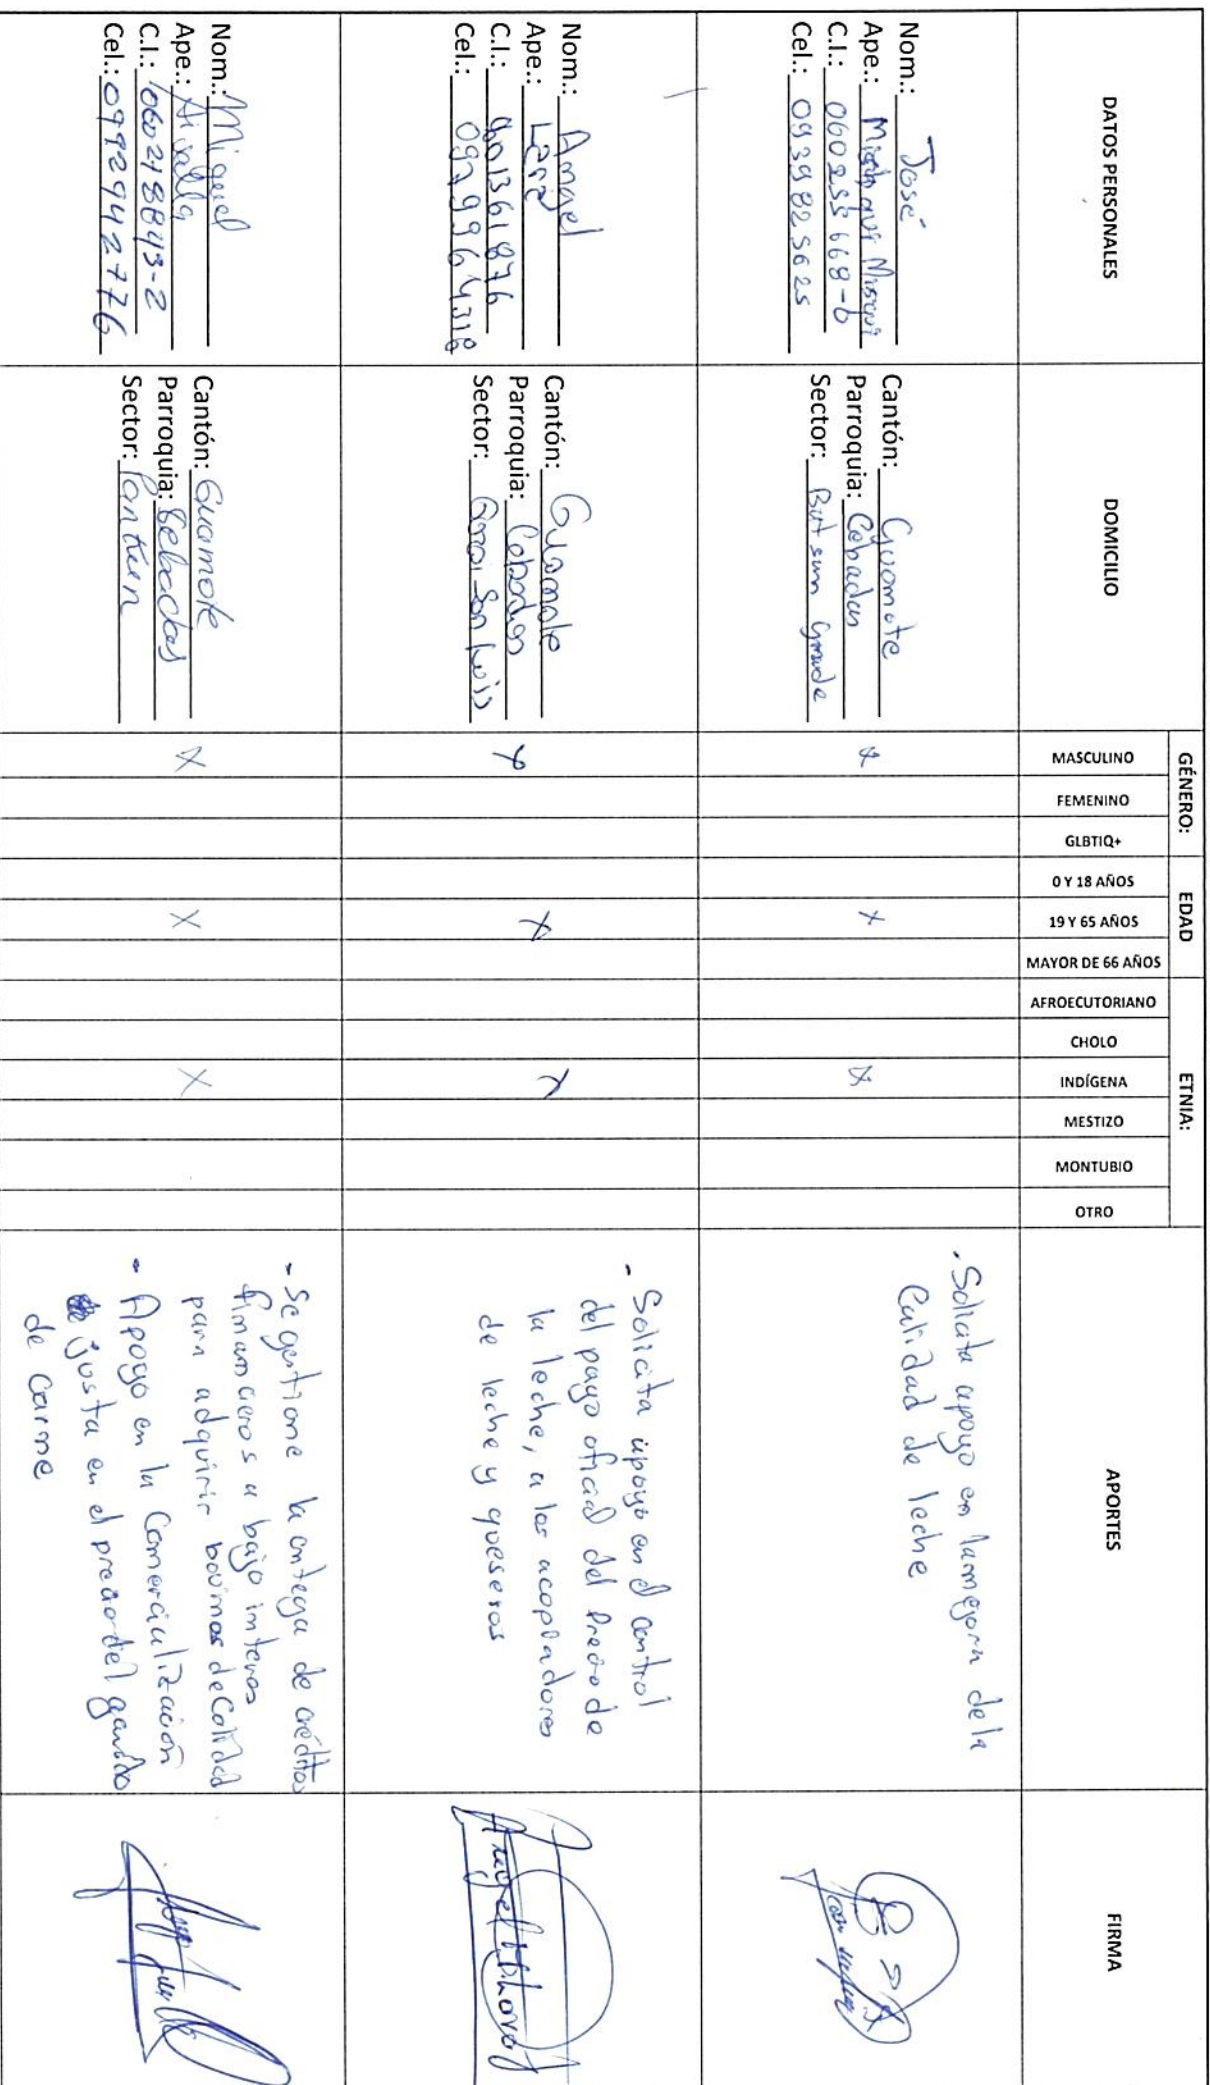 DATOS PERSONALES
DOMICILIO
GÉNERO:
MASCULINO
FEMENINO
GLBTIQ+
EDAD
0 Y 18 AÑOS
19 Y 65 AÑOS
MAYOR DE 66 AÑOS
ETNIA:
AFROECUTORIANO
CHOLO
INDÍGENA
MESTIZO
MONTUBIO
OTRO
APORTES
FIRMA
Nom.: José
Ape.:
C.I.:
Cel.: 0939825625
Cantón: Guamote
Parroquia: Cebadas
Sector: Butsun Grande
X
X
X
- Solicita apoyo en la mejora de la
Calidad de leche
Nom.: Angel
Ape.: Lara
C.I.: 0601361876
Cel.:
Cantón: Guamote
Parroquia: Cebadas
Sector: San Luis
X
X
X
- Solicita apoyo en el control
del pago oficial del Precio de
la leche, a los acopiadores
de leche y queseros
Nom.: Miguel
Ape.:
C.I.: 060218843-2
Cel.: 0992942776
Cantón: Guamote
Parroquia: Cebadas
Sector:
X
X
X
- Se gestione la entega de créditos
finamcieros a bajo interes
para adquirir bovinos de Calidad
- Apoyo en la Comercialización
justa en el precio del ganado
de carne